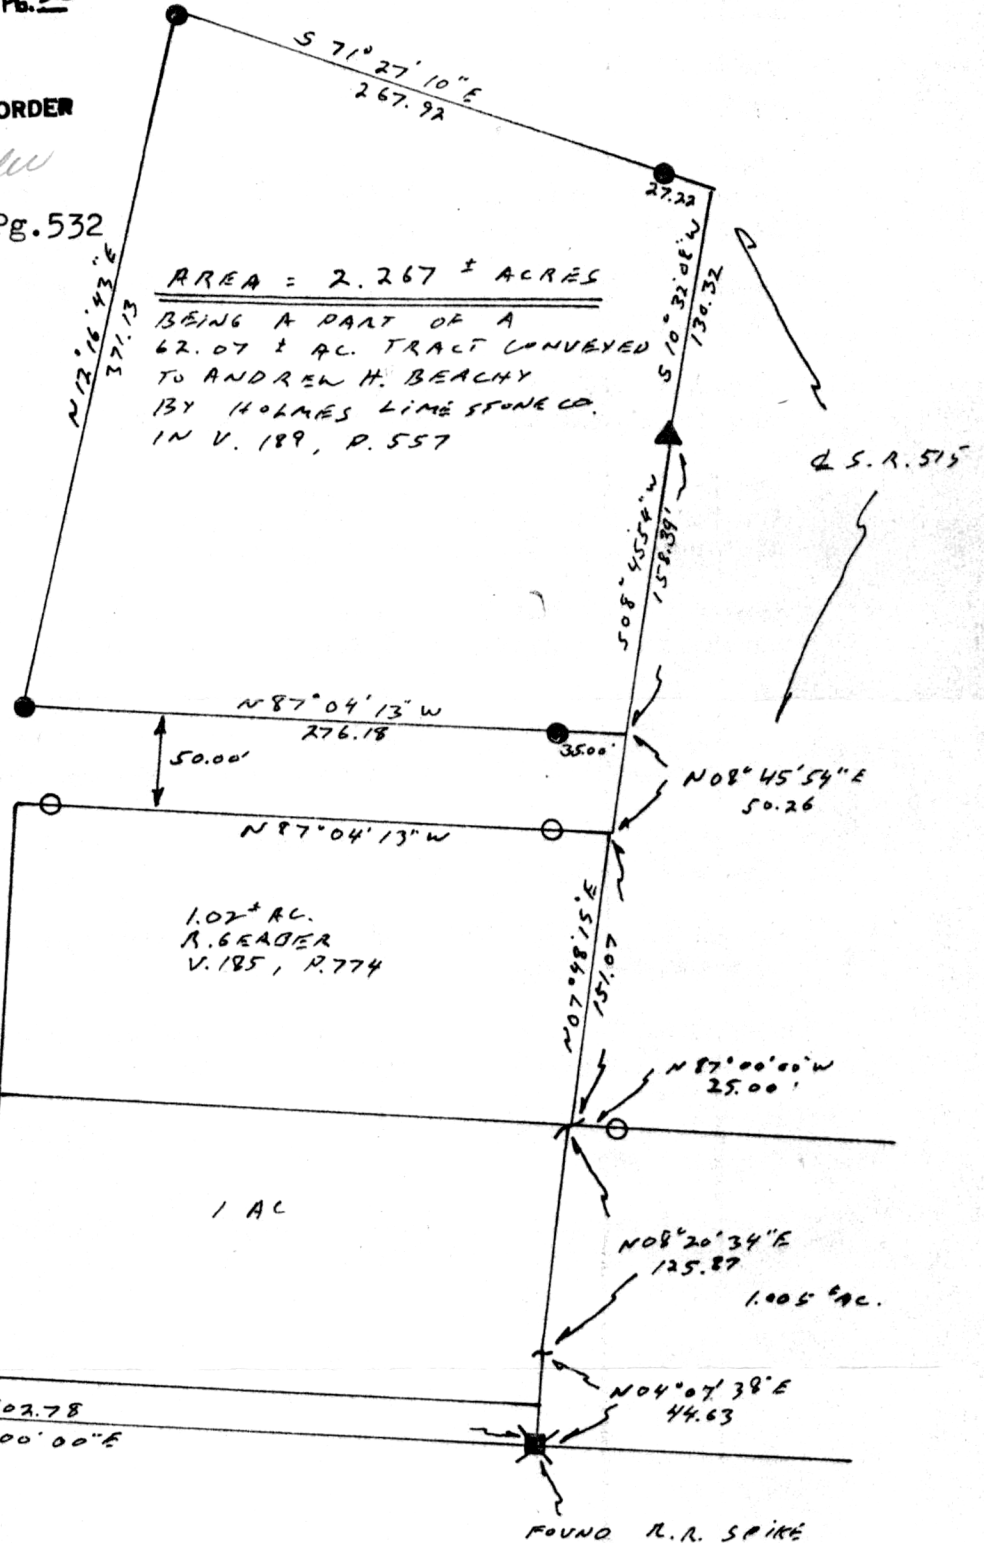 Pb.
ORDER
Pg.532
S 71° 27' 10" E
267.92
27.22
N 12° 16' 43" E
371.13
AREA = 2.267 ± ACRES
BEING A PART OF A
62.07 ± AC. TRACT CONVEYED
TO ANDREW H. BEACHY
BY HOLMES LIMESTONE CO.
IN V. 189, P. 557
S 10° 32' 08" W
130.32
℄ S.R. 515
S 08° 45 54" W
158.39'
N 87° 04' 13" W
276.18
35.00'
50.00'
N 08° 45' 54" E
50.26
N 87° 04' 13" W
1.02± AC.
R. GERBER
V. 185, P. 774
N 07° 48' 15" E
151.07
N 87° 00' 00" W
25.00'
1 AC
N 08° 20' 34" E
125.87
1.005 ± AC.
N 04° 07' 38" E
44.63
02.78
00' 00" E
FOUND R.R. SPIKE